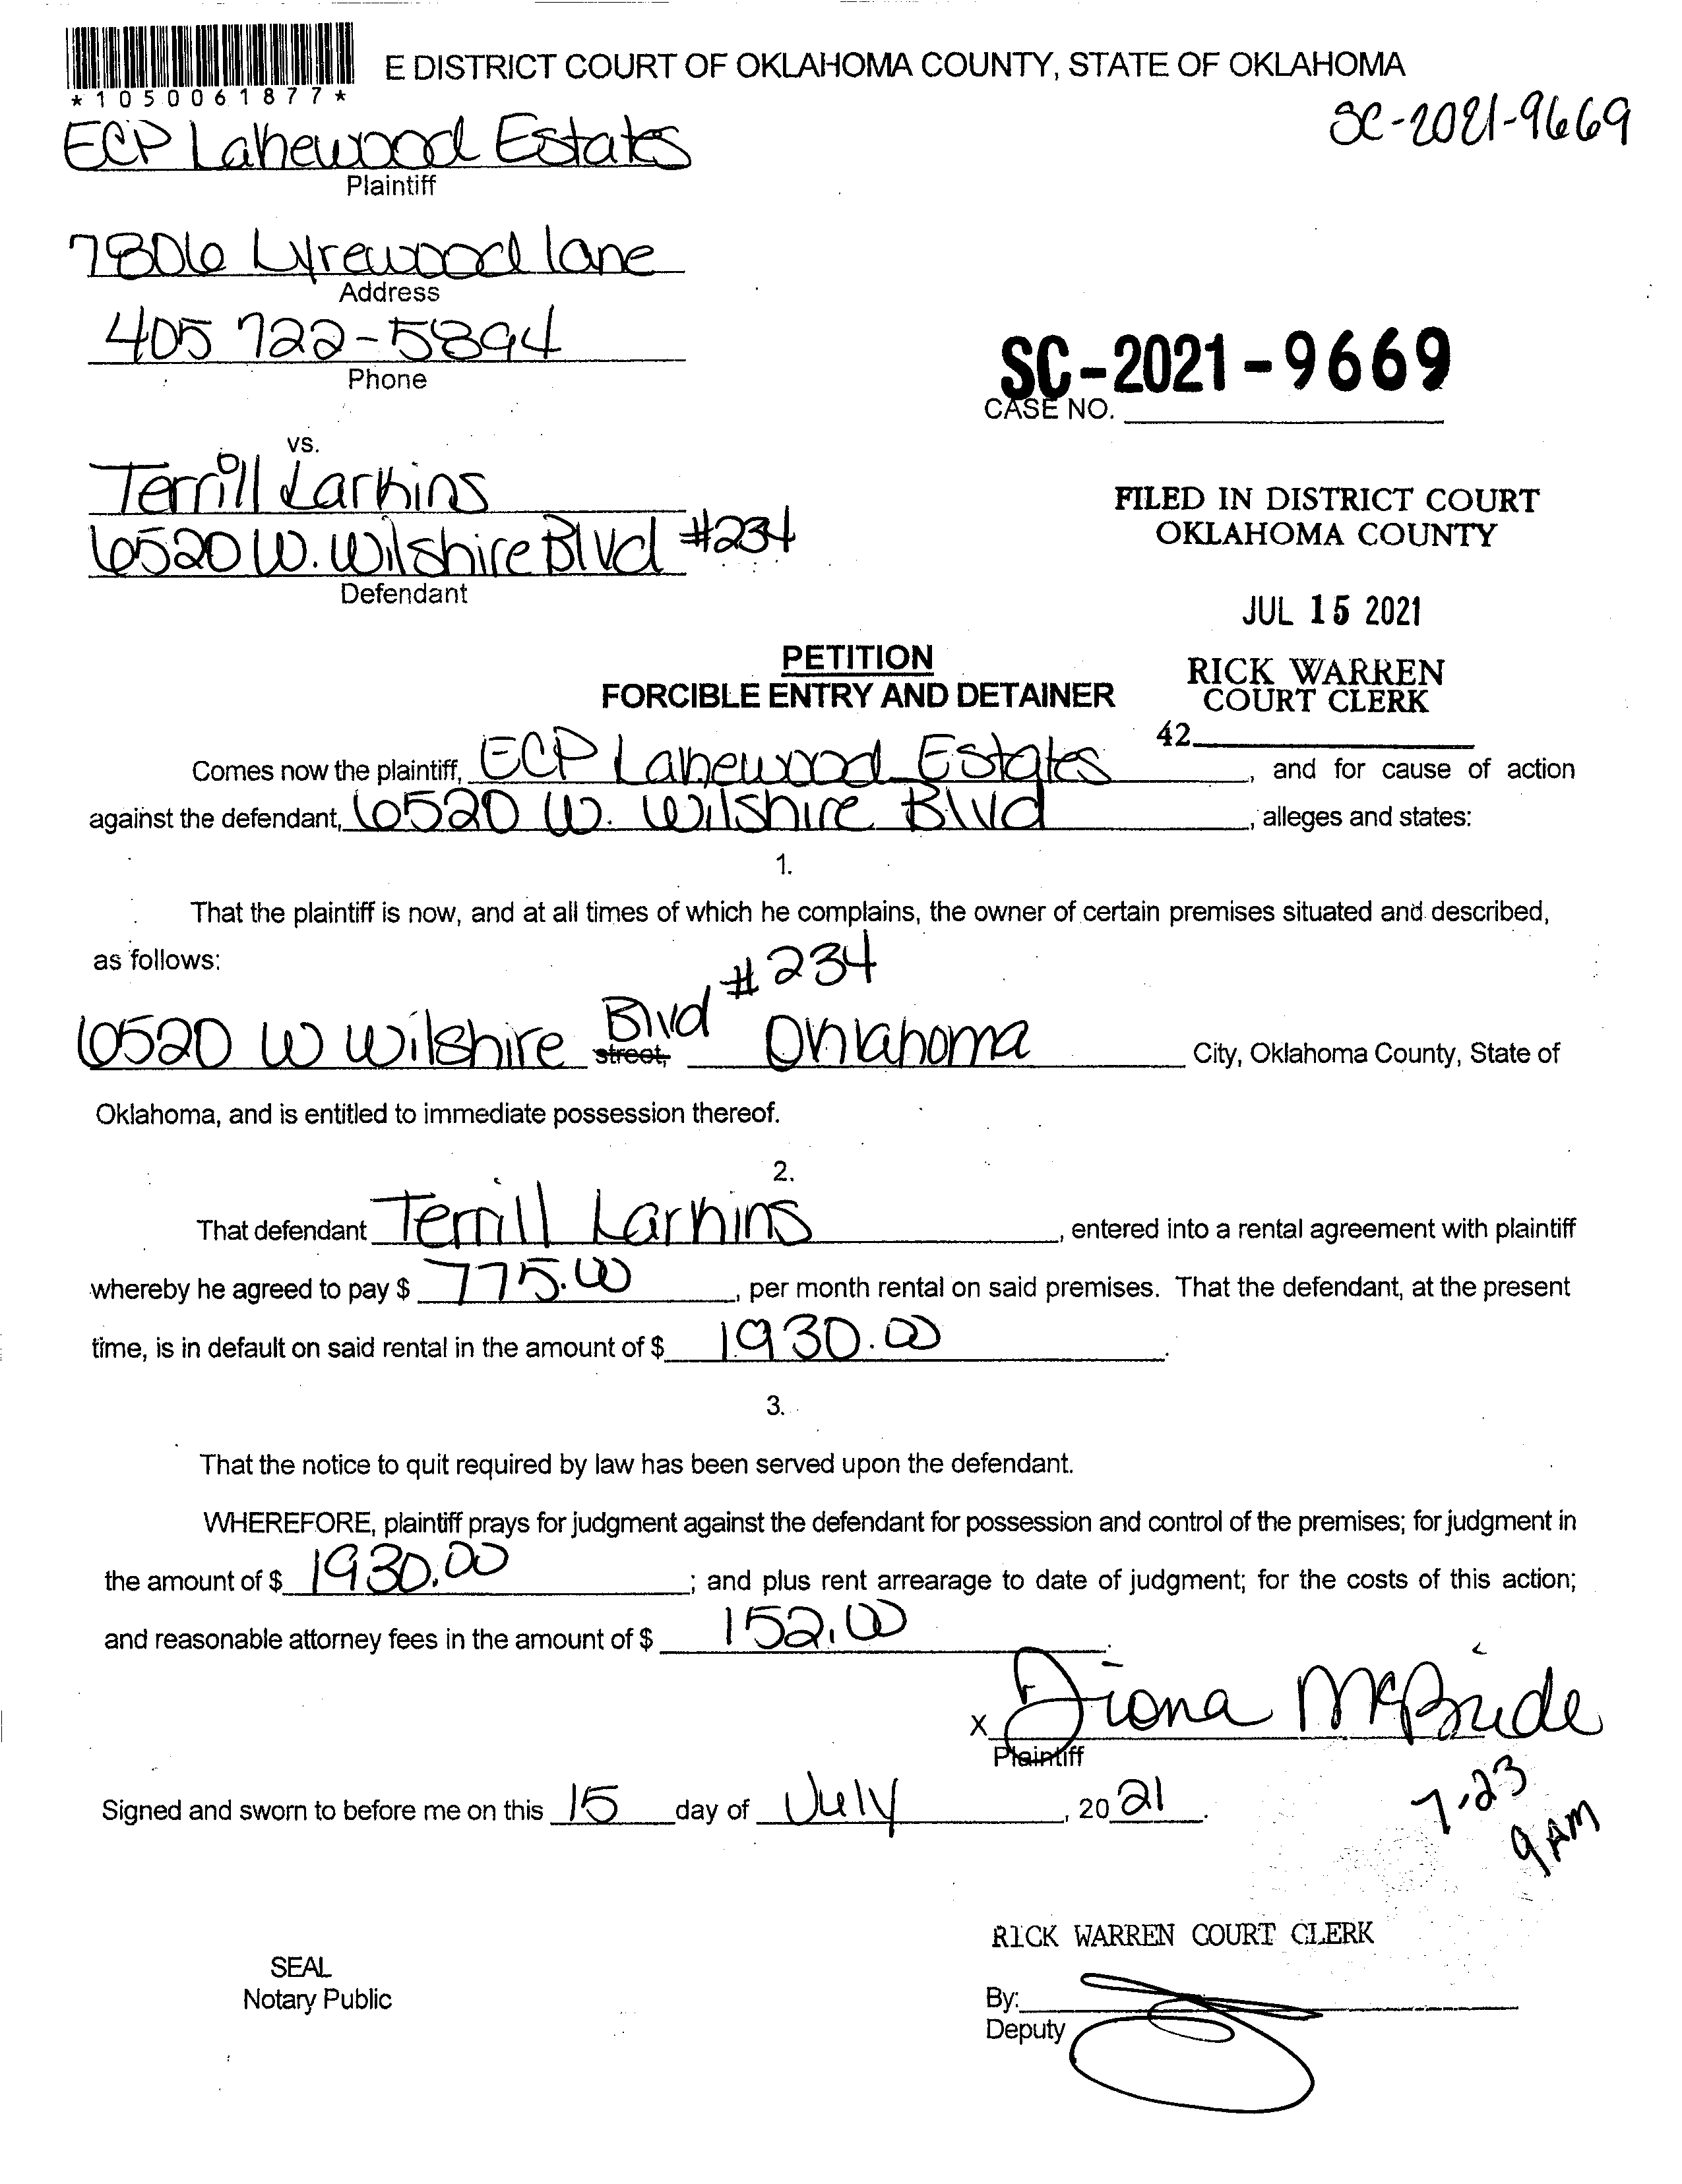 E DISTRICT COURT OF OKLAHOMA COUNTY, STATE OF OKLAHOMA
*1050061877*
SC-2021-9669
ECP Lakewood Estates
Plaintiff
7806 Lyrewood lane
Address
405 722-5894
Phone
SC-2021-9669
CASE NO.
vs.
Terrill Larkins
6520 W. Wilshire Blvd #234
Defendant
FILED IN DISTRICT COURT
OKLAHOMA COUNTY
JUL 15 2021
RICK WARREN
COURT CLERK
42
PETITION
FORCIBLE ENTRY AND DETAINER
Comes now the plaintiff, ECP Lakewood Estates, and for cause of action
against the defendant, 6520 W. Wilshire Blvd, alleges and states:
1.
That the plaintiff is now, and at all times of which he complains, the owner of certain premises situated and described,
as follows:
6520 W Wilshire Blvd #234 street, Oklahoma City, Oklahoma County, State of
Oklahoma, and is entitled to immediate possession thereof.
2.
That defendant Terrill Larkins, entered into a rental agreement with plaintiff
whereby he agreed to pay $ 775.00, per month rental on said premises. That the defendant, at the present
time, is in default on said rental in the amount of $ 1930.00.
3.
That the notice to quit required by law has been served upon the defendant.
WHEREFORE, plaintiff prays for judgment against the defendant for possession and control of the premises; for judgment in
the amount of $ 1930.00; and plus rent arrearage to date of judgment; for the costs of this action;
and reasonable attorney fees in the amount of $ 152.00.
x Diona McBride
Plaintiff
Signed and sworn to before me on this 15 day of July, 20 21.
7.23
9 AM
RICK WARREN COURT CLERK
SEAL
Notary Public
By:
Deputy